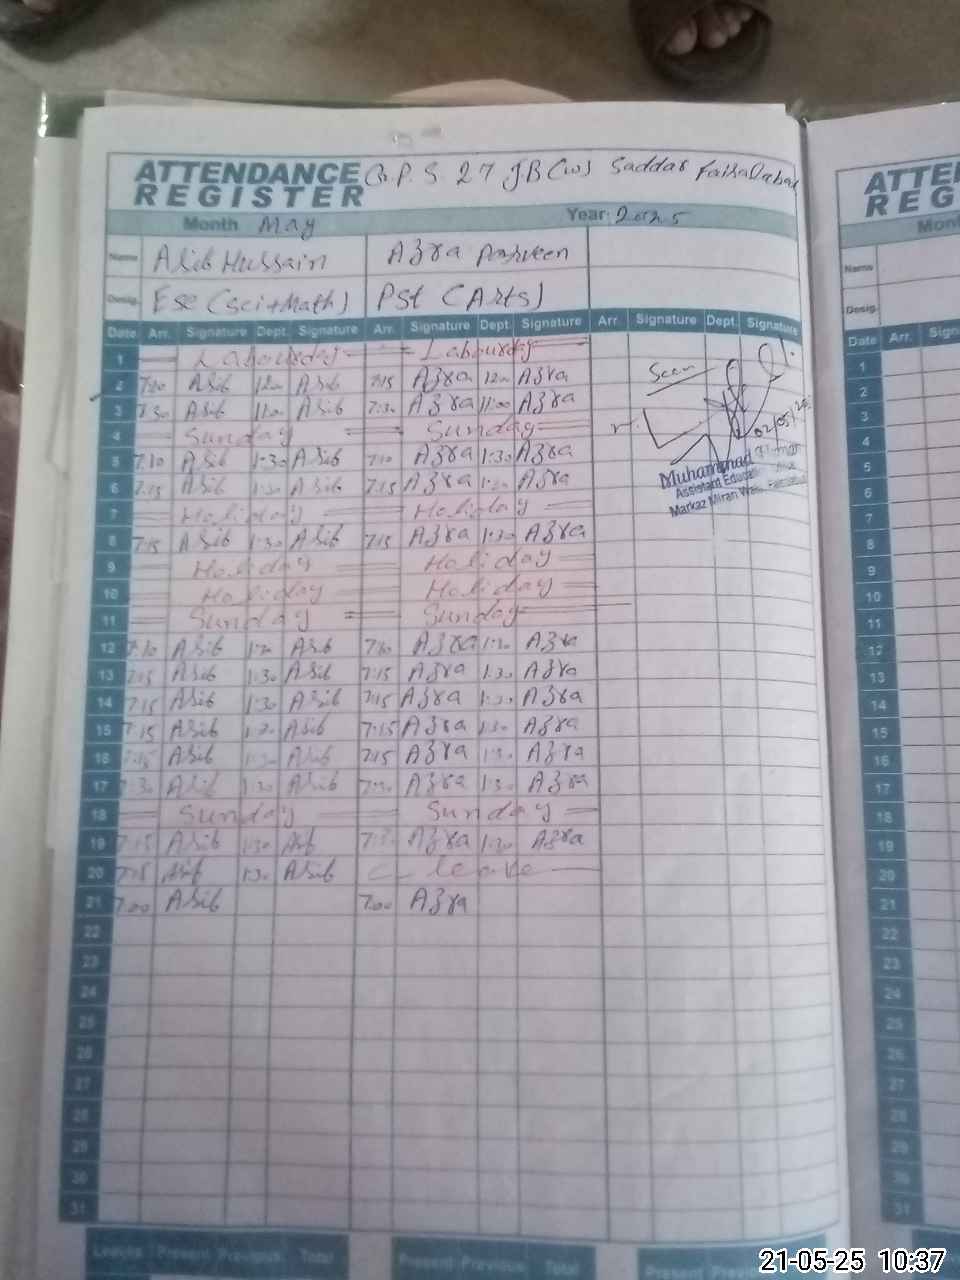 ATTENDANCE REGISTER G.P.S. 27 JB (W) Saddar Faisalabad
Month May Year: 2025
Name Asib Hussain Azra Parveen
Desig. Ese (Sci+Math) Pst (Arts)
Date Arr. Signature Dept. Signature Arr. Signature Dept. Signature Arr. Signature Dept. Signature
1 Labourday Labourday
2 7:20 Asib 12:00 Asib 7:15 Azra 12:00 Azra
3 7:30 Asib 11:00 Asib 7:30 Azra 11:00 Azra
4 Sunday Sunday
5 7:10 Asib 1:30 Asib 7:10 Azra 1:30 Azra
6 7:15 Asib 1:30 Asib 7:15 Azra 1:30 Azra
7 Holiday Holiday
8 7:15 Asib 1:30 Asib 7:15 Azra 1:30 Azra
9 Holiday Holiday
10 Holiday Holiday
11 Sunday Sunday
12 7:10 Asib 1:30 Asib 7:10 Azra 1:30 Azra
13 7:15 Asib 1:30 Asib 7:15 Azra 1:30 Azra
14 7:15 Asib 1:30 Asib 7:15 Azra 1:30 Azra
15 7:15 Asib 1:30 Asib 7:15 Azra 1:30 Azra
16 7:15 Asib 1:30 Asib 7:15 Azra 1:30 Azra
17 7:30 Asib 1:30 Asib 7:30 Azra 1:30 Azra
18 Sunday Sunday
19 7:15 Asib 1:30 Asib 7:30 Azra 1:30 Azra
20 7:15 Asib 1:30 Asib C leave
21 7:00 Asib 7:00 Azra
22
23
24
25
26
27
28
29
30
31
Seen
02/05/25
Muhammad
Assistant
Markaz Miran
Leaves Present Previous Total Present Previous Total Present Previous Total
Name
Desig.
Date Arr.
1
2
3
4
5
6
7
8
9
10
11
12
13
14
15
16
17
18
19
20
21
22
23
24
25
26
27
28
29
30
31
21-05-25 10:37